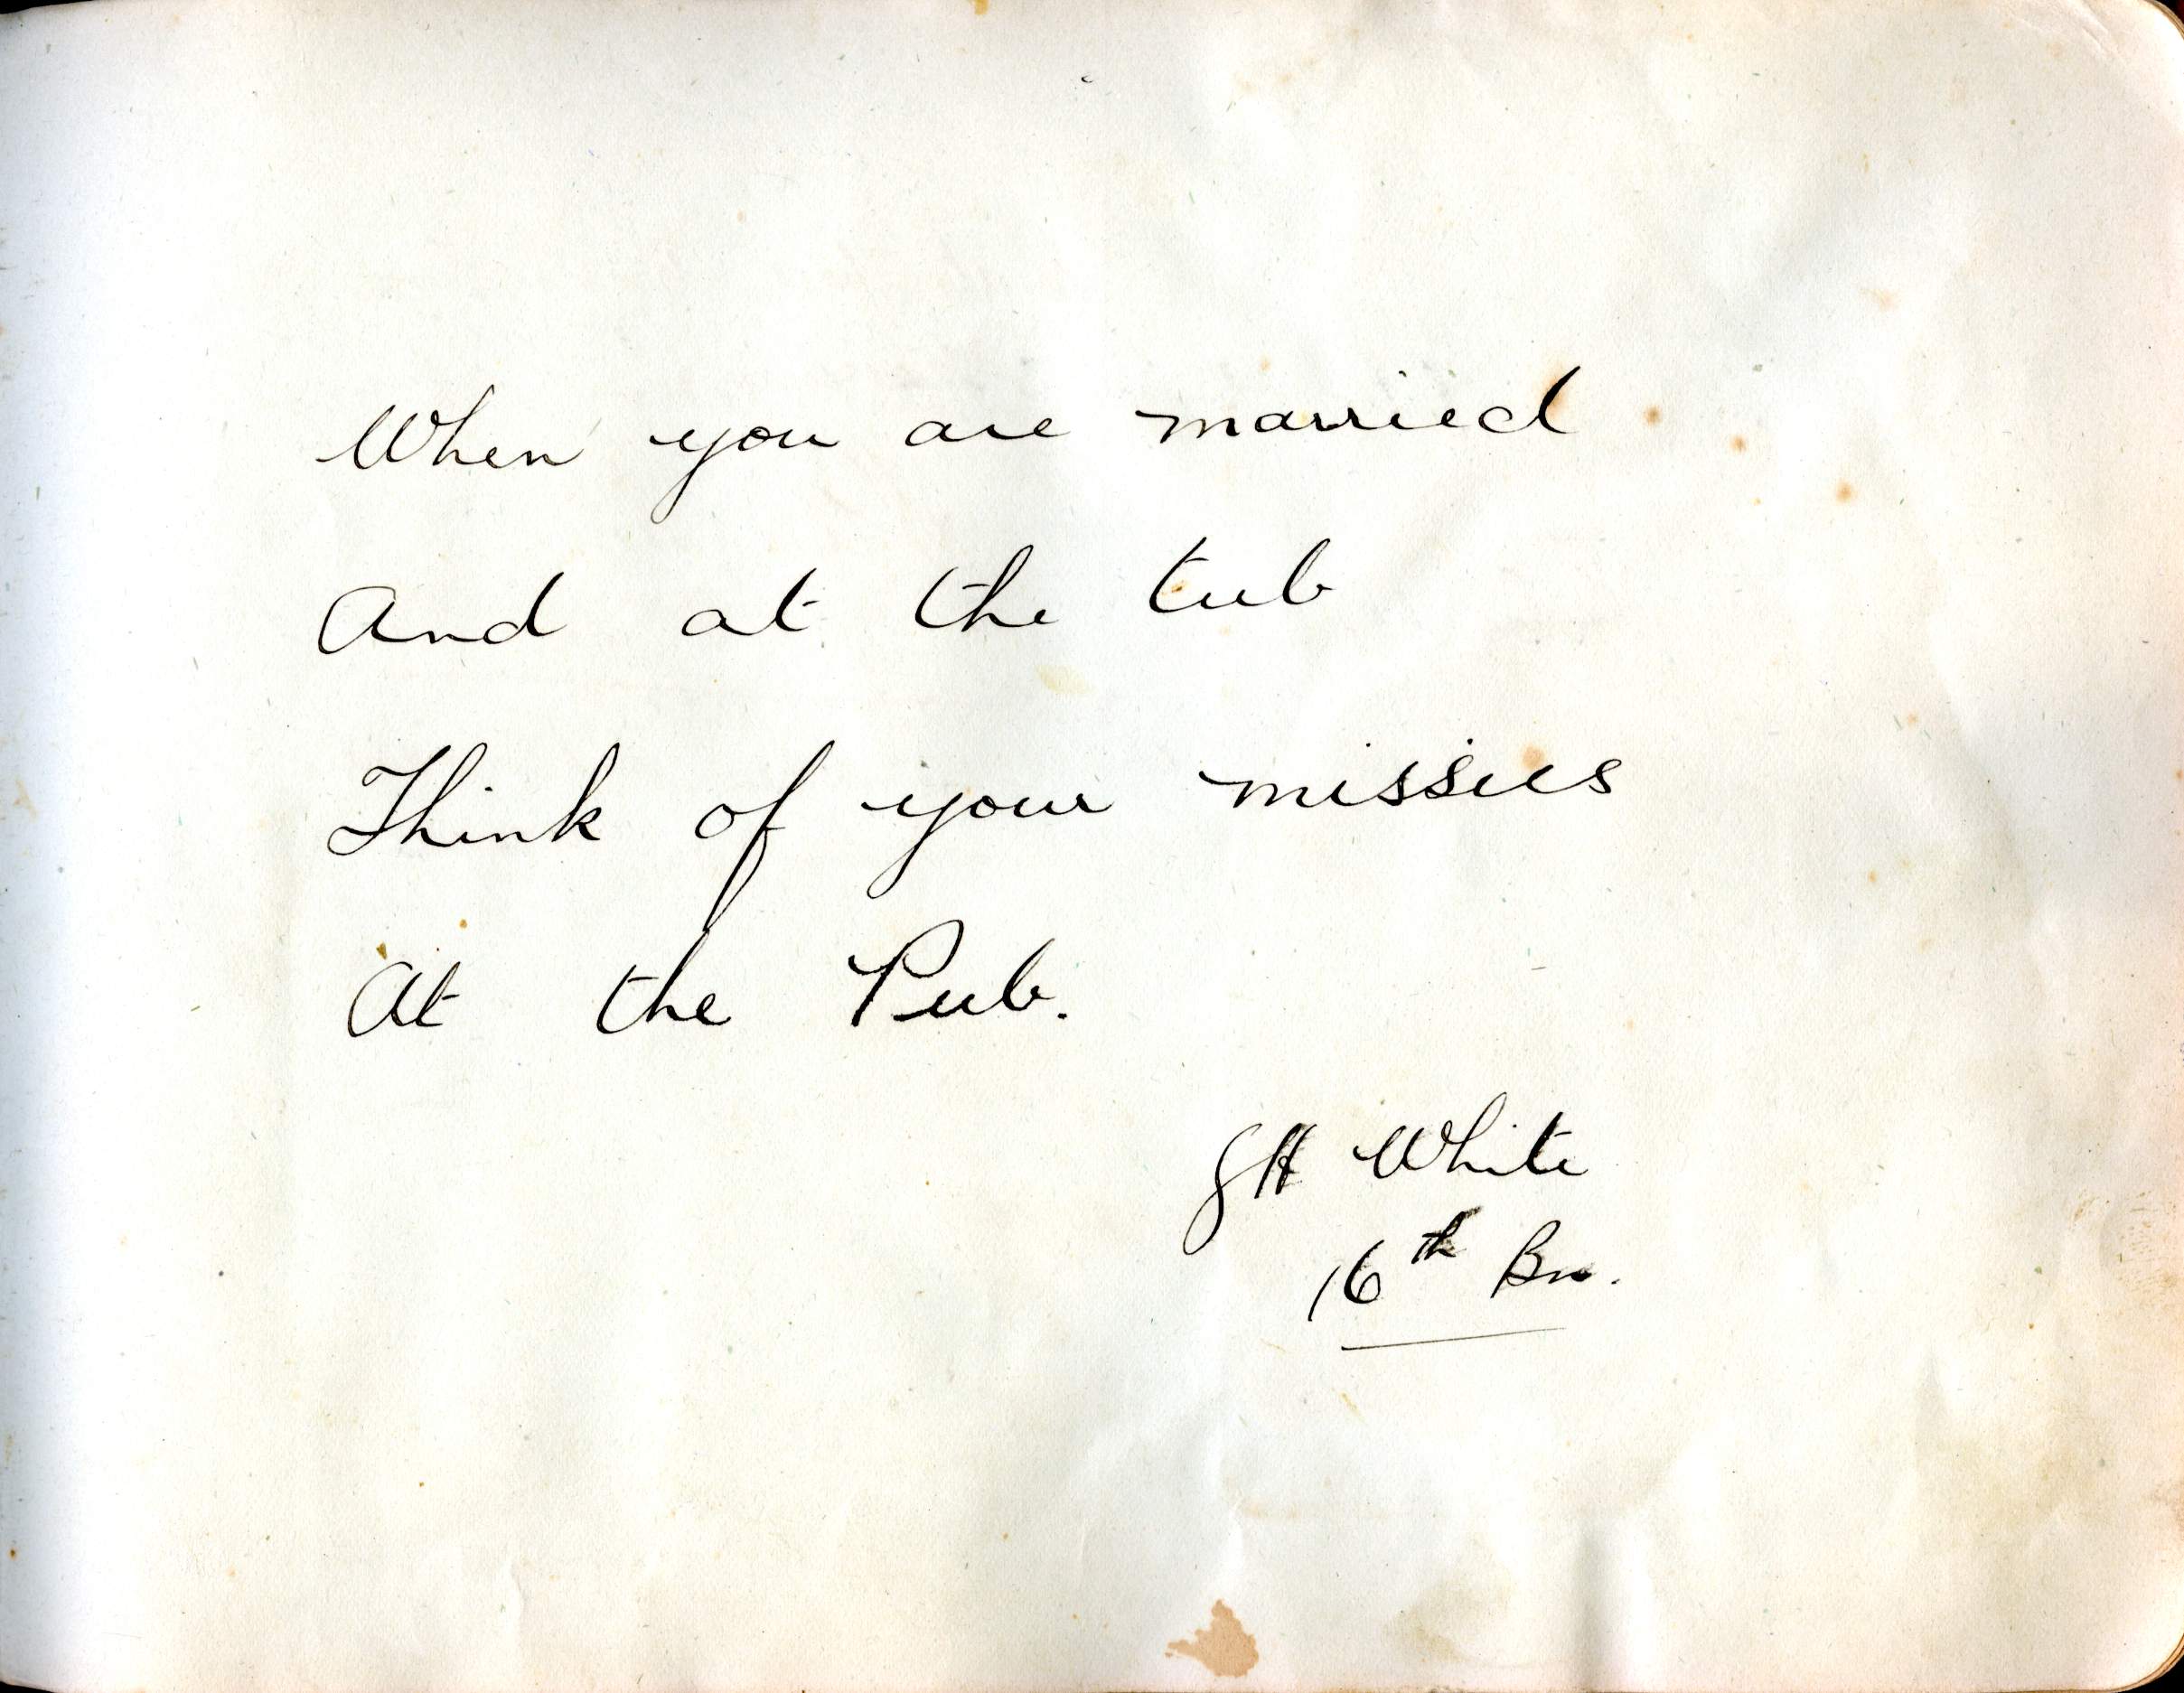 When you are married
And at the tub
Think of your missus
At the Pub.
GH White
16th Bn.